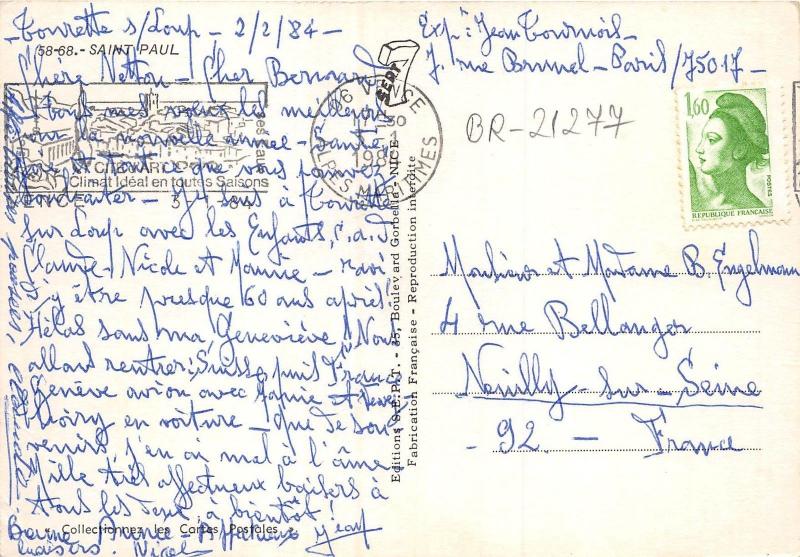 Tourrette s/Loup - 2/2/84 -
58-68.- SAINT PAUL
Chère Netton - Cher Bernard
Tous mes vœux les meilleurs
pour la nouvelle année - Santé,
et tout ce que vous pouvez
souhaiter - Je suis à Tourrette
sur Loup avec les Enfants, c.a.d
Claude - Nicole et Maurice - ravi
d'y être presque 60 ans après!
Hélas sans ma Geneviève! Nous
allons rentrer: Suisse puis France
Genève avion avec
Thoiry en voiture - Que de sou-
venirs, j'en ai mal à l'âme
Mille très affectueux baisers à
tous les deux, à bientôt!
Jean
Bonne Année - Affectueux
baisers. Nicole
« Collectionnez les Cartes Postales »
CITE
Climat Idéal en toutes Saisons
VENCE
06 VENCE
ALPES-MARITIMES
Editions S.E.P.T. - 35, Boulevard Gorbella - NICE
Fabrication Française - Reproduction interdite
SEPT
Exp: Jean Tournois -
7. rue Brunel - Paris/75017 -
BR-21277
1,60
POSTES
REPUBLIQUE FRANÇAISE
Monsieur et Madame B. Engelmann
4 rue Bellanger
Neuilly-sur-Seine
- 92. - France